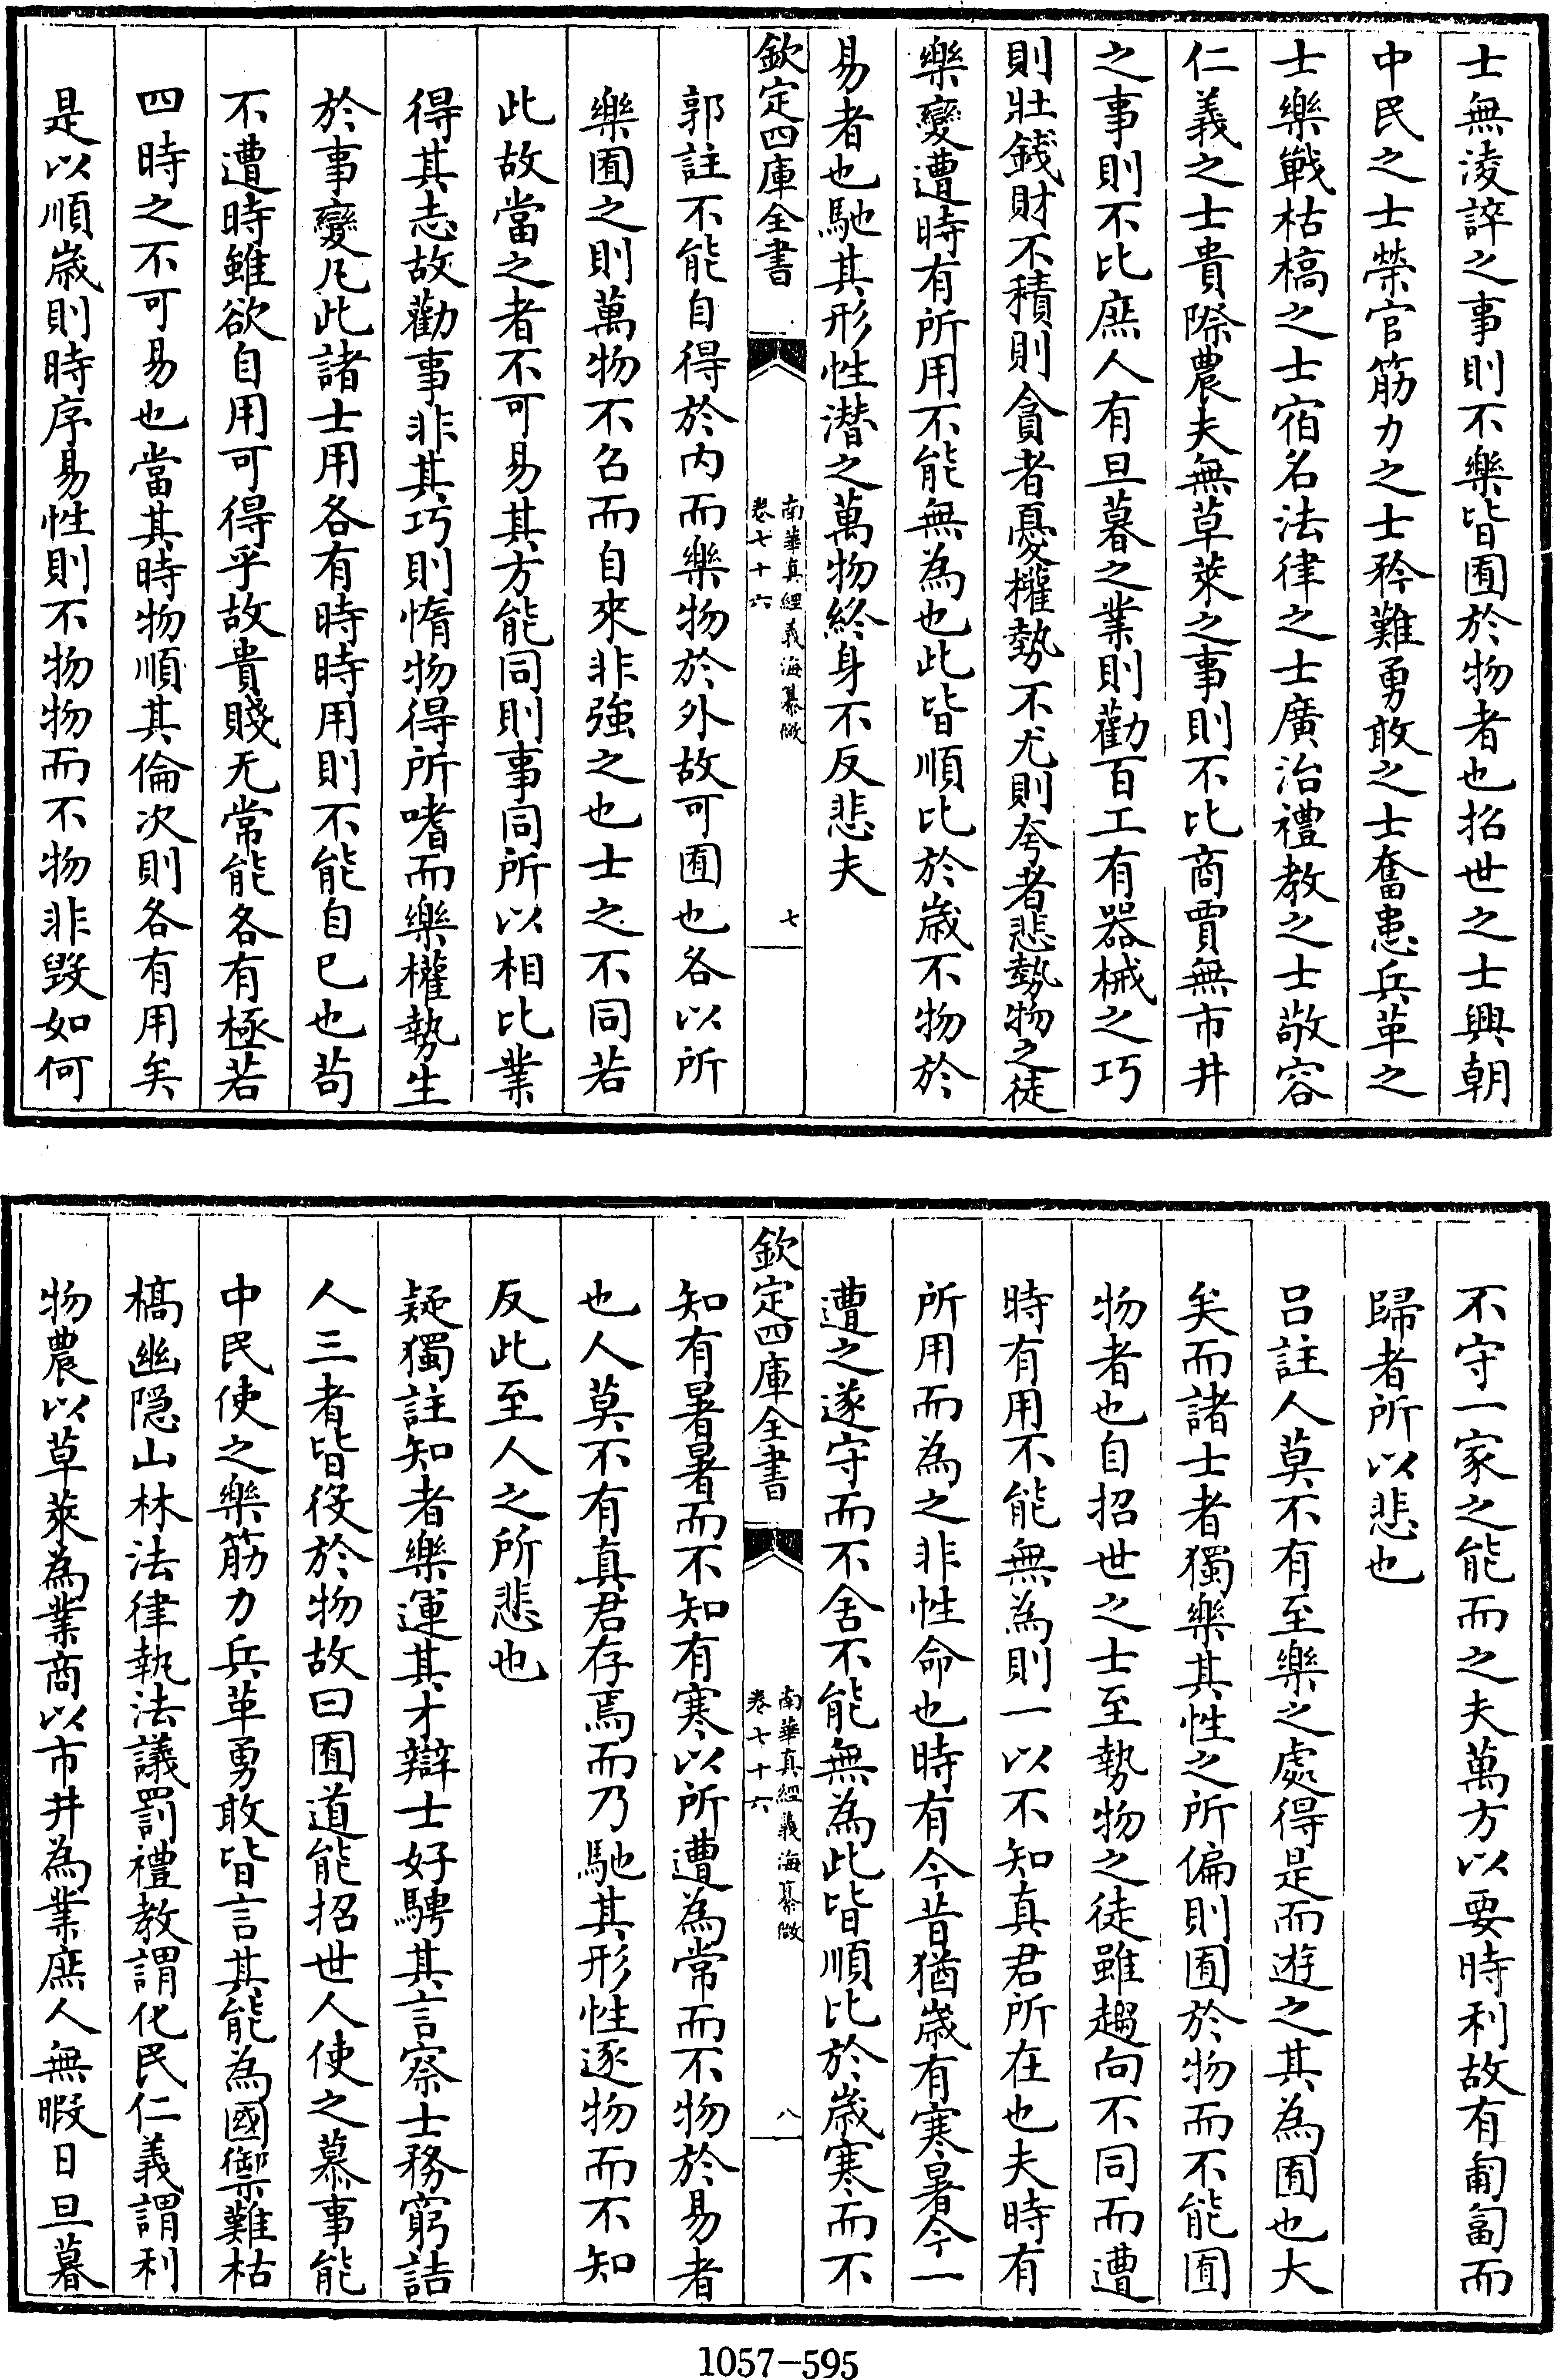 士無淩誶之事則不樂皆囿於物者也招世之士興朝
中民之士榮官筋力之士矜難勇敢之士奮患兵革之
士樂戰枯槁之士宿名法律之士廣治禮教之士敬容
仁義之士貴際農夫無草萊之事則不比商賈無市井
之事則不比庶人有旦暮之業則勸百工有器械之巧
則壯錢財不積則貪者憂權勢不尤則夸者悲勢物之徒
樂變遭時有所用不能無為也此皆順比於歲不物於
易者也馳其形性潛之萬物終身不反悲夫
欽定四庫全書
南華真經義海纂微
卷七十六
七
郭註不能自得於內而樂物於外故可囿也各以所
樂囿之則萬物不召而自來非強之也士之不同若
此故當之者不可易其方能同則事同所以相比業
得其志故勸事非其巧則惰物得所嗜而樂權勢生
於事變凡此諸士用各有時時用則不能自已也苟
不遭時雖欲自用可得乎故貴賤无常能各有極若
四時之不可易也當其時物順其倫次則各有用矣
是以順歲則時序易性則不物物而不物非毀如何
不守一家之能而之夫萬方以要時利故有匍匐而
歸者所以悲也
呂註人莫不有至樂之處得是而遊之其為囿也大
矣而諸士者獨樂其性之所偏則囿於物而不能囿
物者也自招世之士至勢物之徒雖趨向不同而遭
時有用不能無為則一以不知真君所在也夫時有
所用而為之非性命也時有今昔猶歲有寒暑今一
遭之遂守而不舍不能無為此皆順比於歲寒而不
欽定四庫全書
南華真經義海纂微
卷七十六
八
知有暑暑而不知有寒以所遭為常而不物於易者
也人莫不有真君存焉而乃馳其形性逐物而不知
反此至人之所悲也
疑獨註知者樂運其才辯士好騁其言察士務窮詰
人三者皆役於物故曰囿道能招世人使之慕事能
中民使之樂筋力兵革勇敢皆言其能為國禦難枯
槁幽隱山林法律執法議罰禮教謂化民仁義謂利
物農以草萊為業商以市井為業庶人無暇日旦暮
1057-595